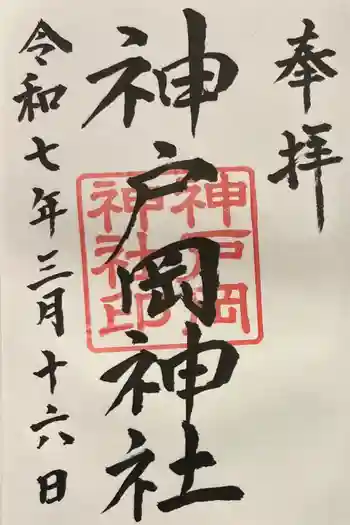 奉拝
神戸岡神社
神戸岡
神社印
令和七年三月十六日